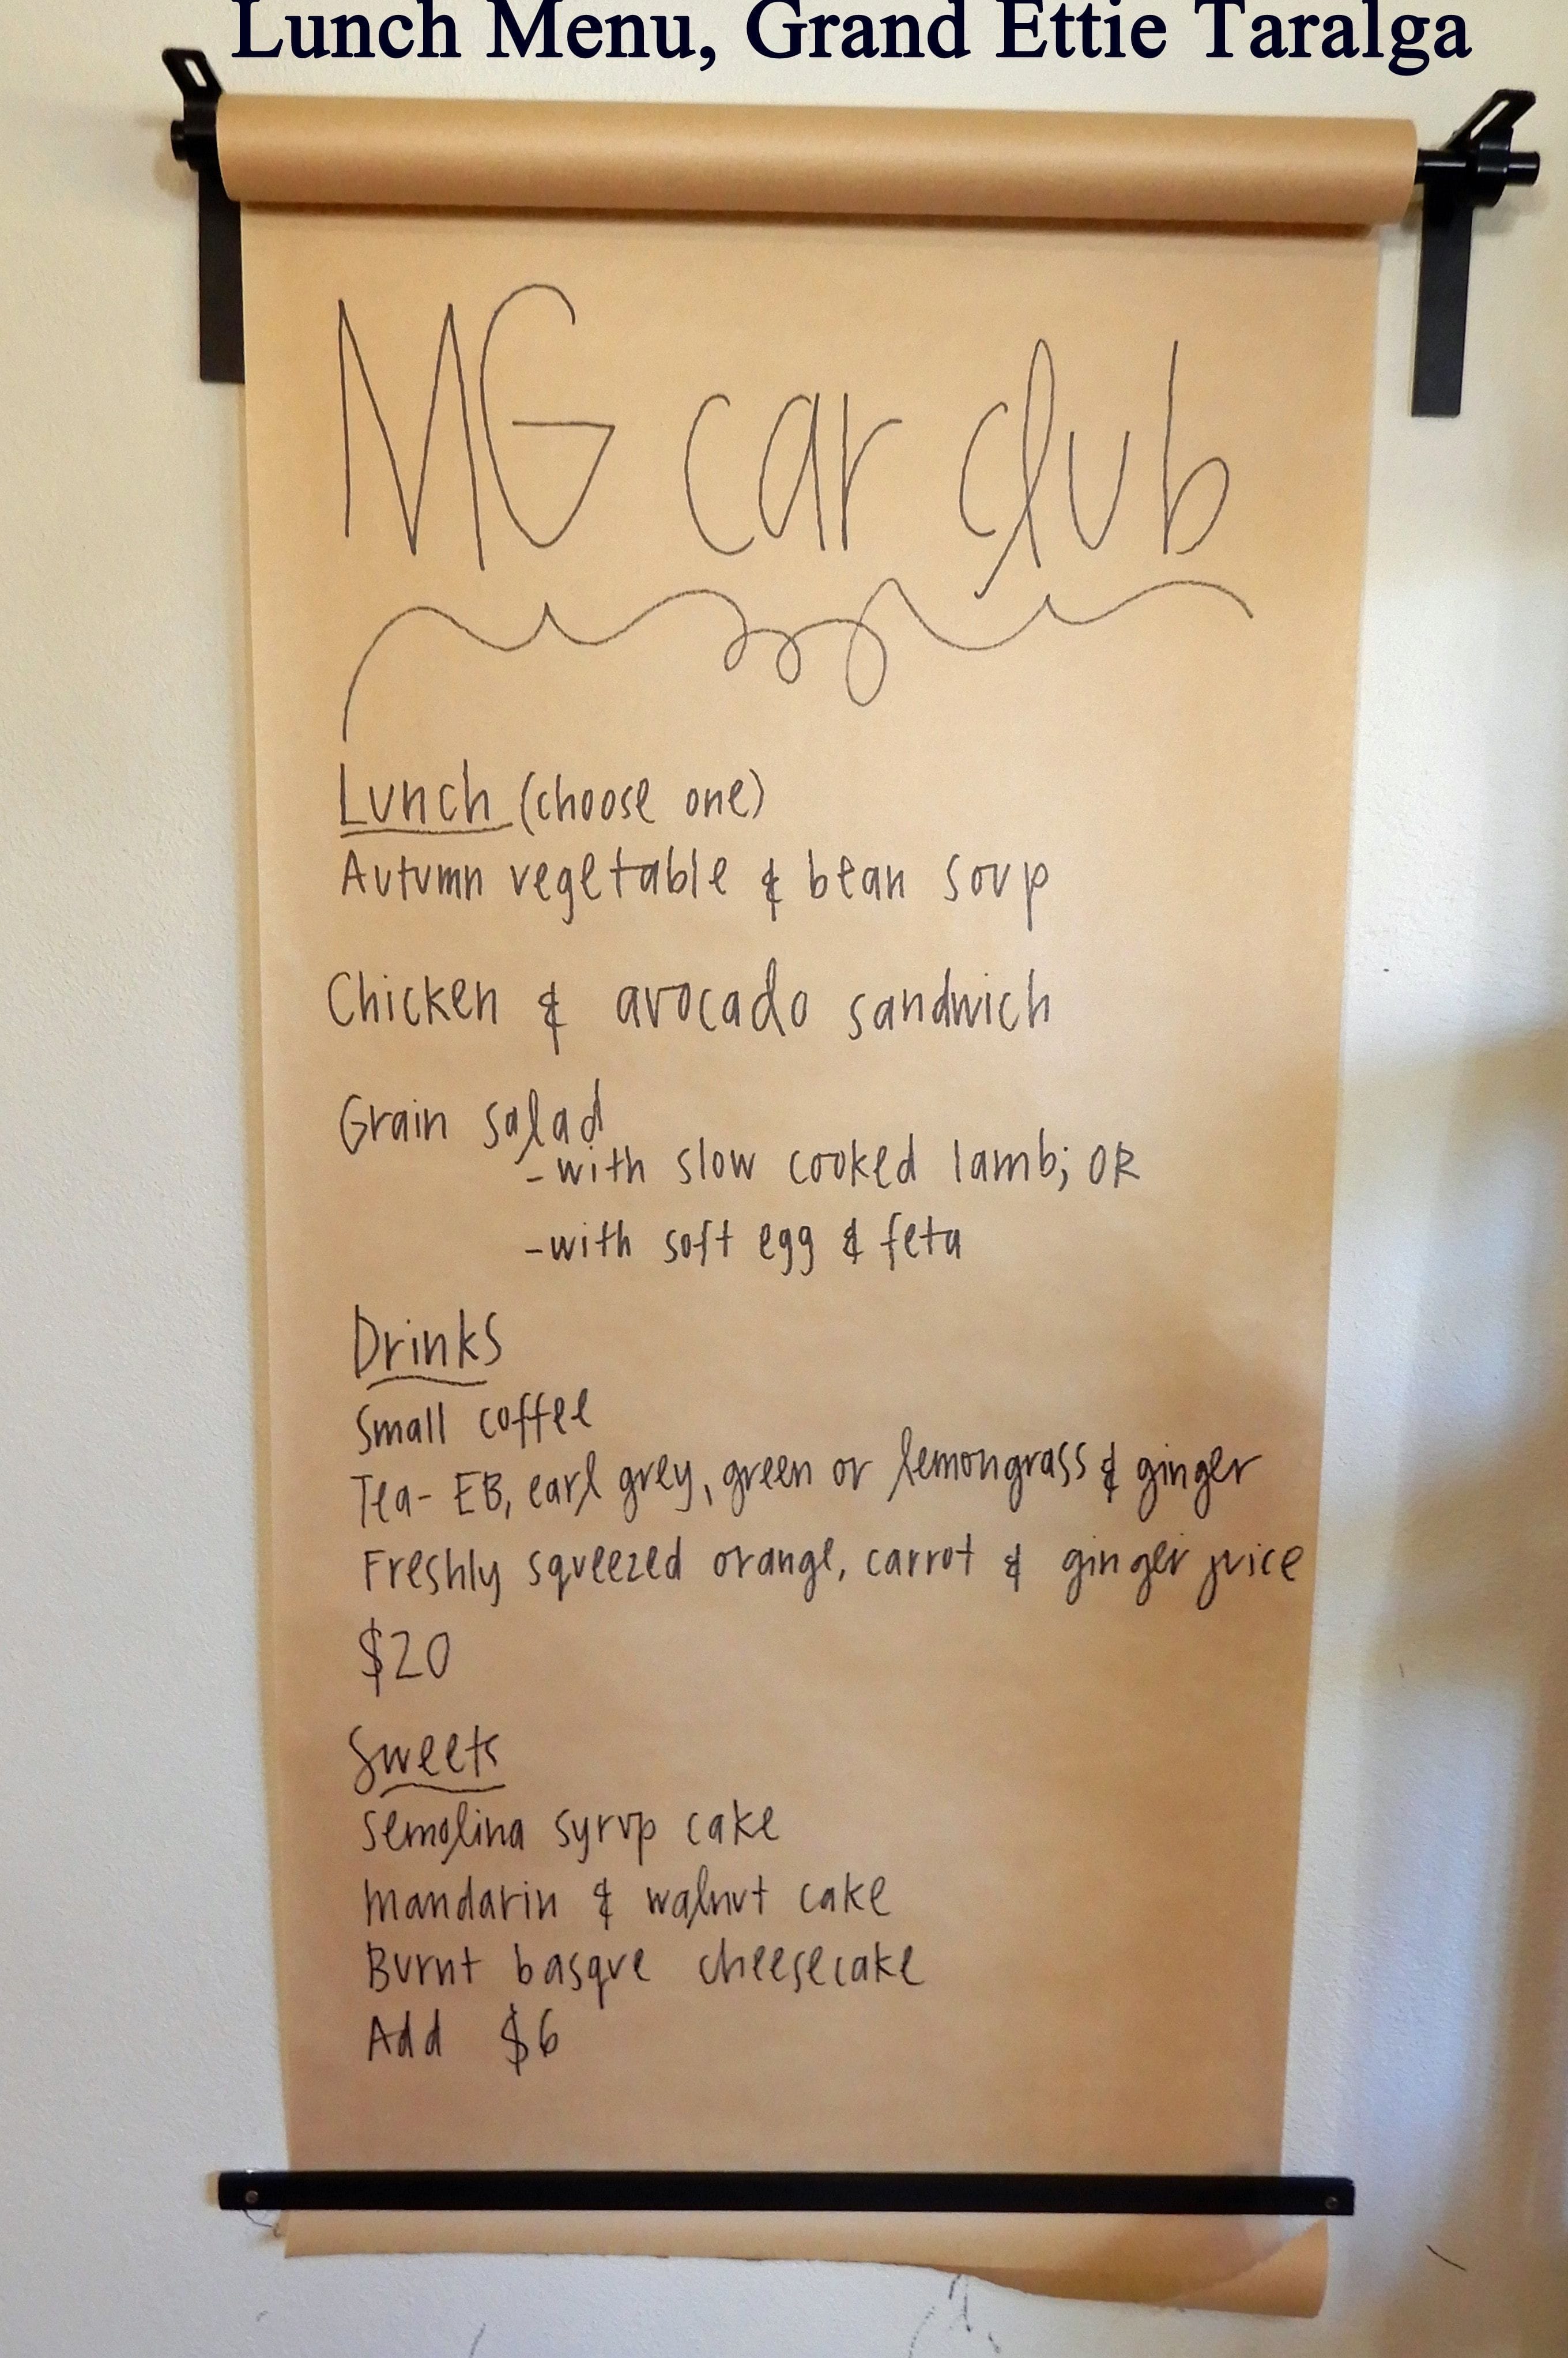 Lunch Menu, Grand Ettie Taralga
MG car club
Lunch (choose one)
Autumn vegetable & bean soup
Chicken & avocado sandwich
Grain salad
-with slow cooked lamb; OR
-with soft egg & feta
Drinks
Small coffee
Tea- EB, earl grey, green or lemongrass & ginger
Freshly squeezed orange, carrot & ginger juice
$20
Sweets
Semolina syrup cake
Mandarin & walnut cake
Burnt basque cheesecake
Add $6